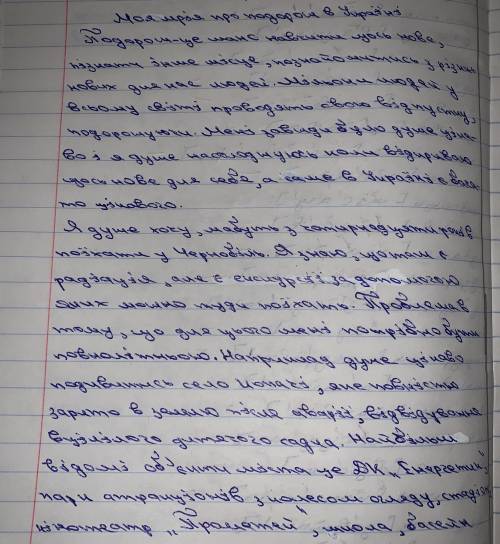 Моя мрія про подорож в Україні
Подорож-це мано навчити щось нове,
пізнати інше місце, познайомитись з різних
нових для нас людей. Мільйони людей у
всьому світі проводять свою відпустку,
подорожуючи. Мені завжди було дуже ціка-
во і я дуже насолоджуюсь коли відкриваю
щось нове для себе, а саме в Україні є бага-
то цікавого.
Я дуже хочу, мабуть з чотирнадцяти років
поїхати у Чернобіль. Я знаю, що там є
радіація, але є екскурсії за допомогою
яких можна туди поїхать. Проблема в
тому, що для цього мені потрібно бути
повнолітньою. Наприклад дуже цікаво
подивитись село Копачі, яке повністю
зарято в землю після аварії, відвідування
вцілілого дитячого садка. Найбільш
відомі об'єкти міста це ДК „Енергетик,"
парк атракціонів з колесом огляду,
кінотеатр „Прометей", школа, басейн